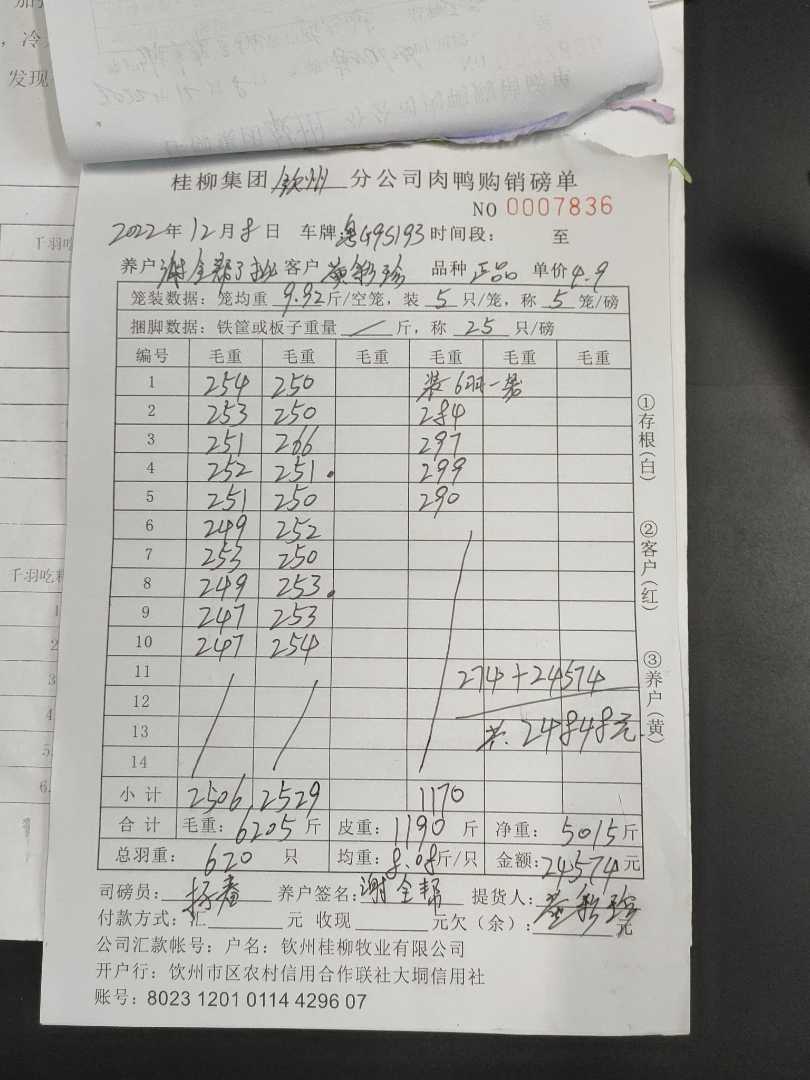 加
，冷
发现
千羽吃
千羽吃料
1
2
3
4
5.
6.
桂柳集团 钦州 分公司肉鸭购销磅单
NO 0007836
2022年12月8日 车牌粤G95193时间段： 至
养户谢全帮 客户 黄彩珍 品种 正品 单价4.9
笼装数据：笼均重 9.92斤/空笼，装 5 只/笼，称 5 笼/磅
捆脚数据：铁筐或板子重量 / 斤，称 25 只/磅
编号 毛重 毛重 毛重 毛重 毛重 毛重
1 254 250 装6羽一笼
2 253 250 284
3 251 266 297
4 252 251. 299
5 251 250 290
6 249 252
7 253 250
8 249 253.
9 247 253
10 247 254
11 274+24574
12
13 共：24848元
14
小计 2506 2529 1170
合计 毛重：6205斤 皮重：1190斤 净重：5015斤
总羽重：620只 均重：8.08斤/只 金额：24574元
司磅员： 养户签名：谢全帮 提货人：黄彩珍
付款方式：汇 元 收现 元欠（余）： 元
公司汇款帐号：户名：钦州桂柳牧业有限公司
开户行：钦州市区农村信用合作联社大垌信用社
账号：8023 1201 0114 4296 07
①存根（白）
②客户（红）
③养户（黄）